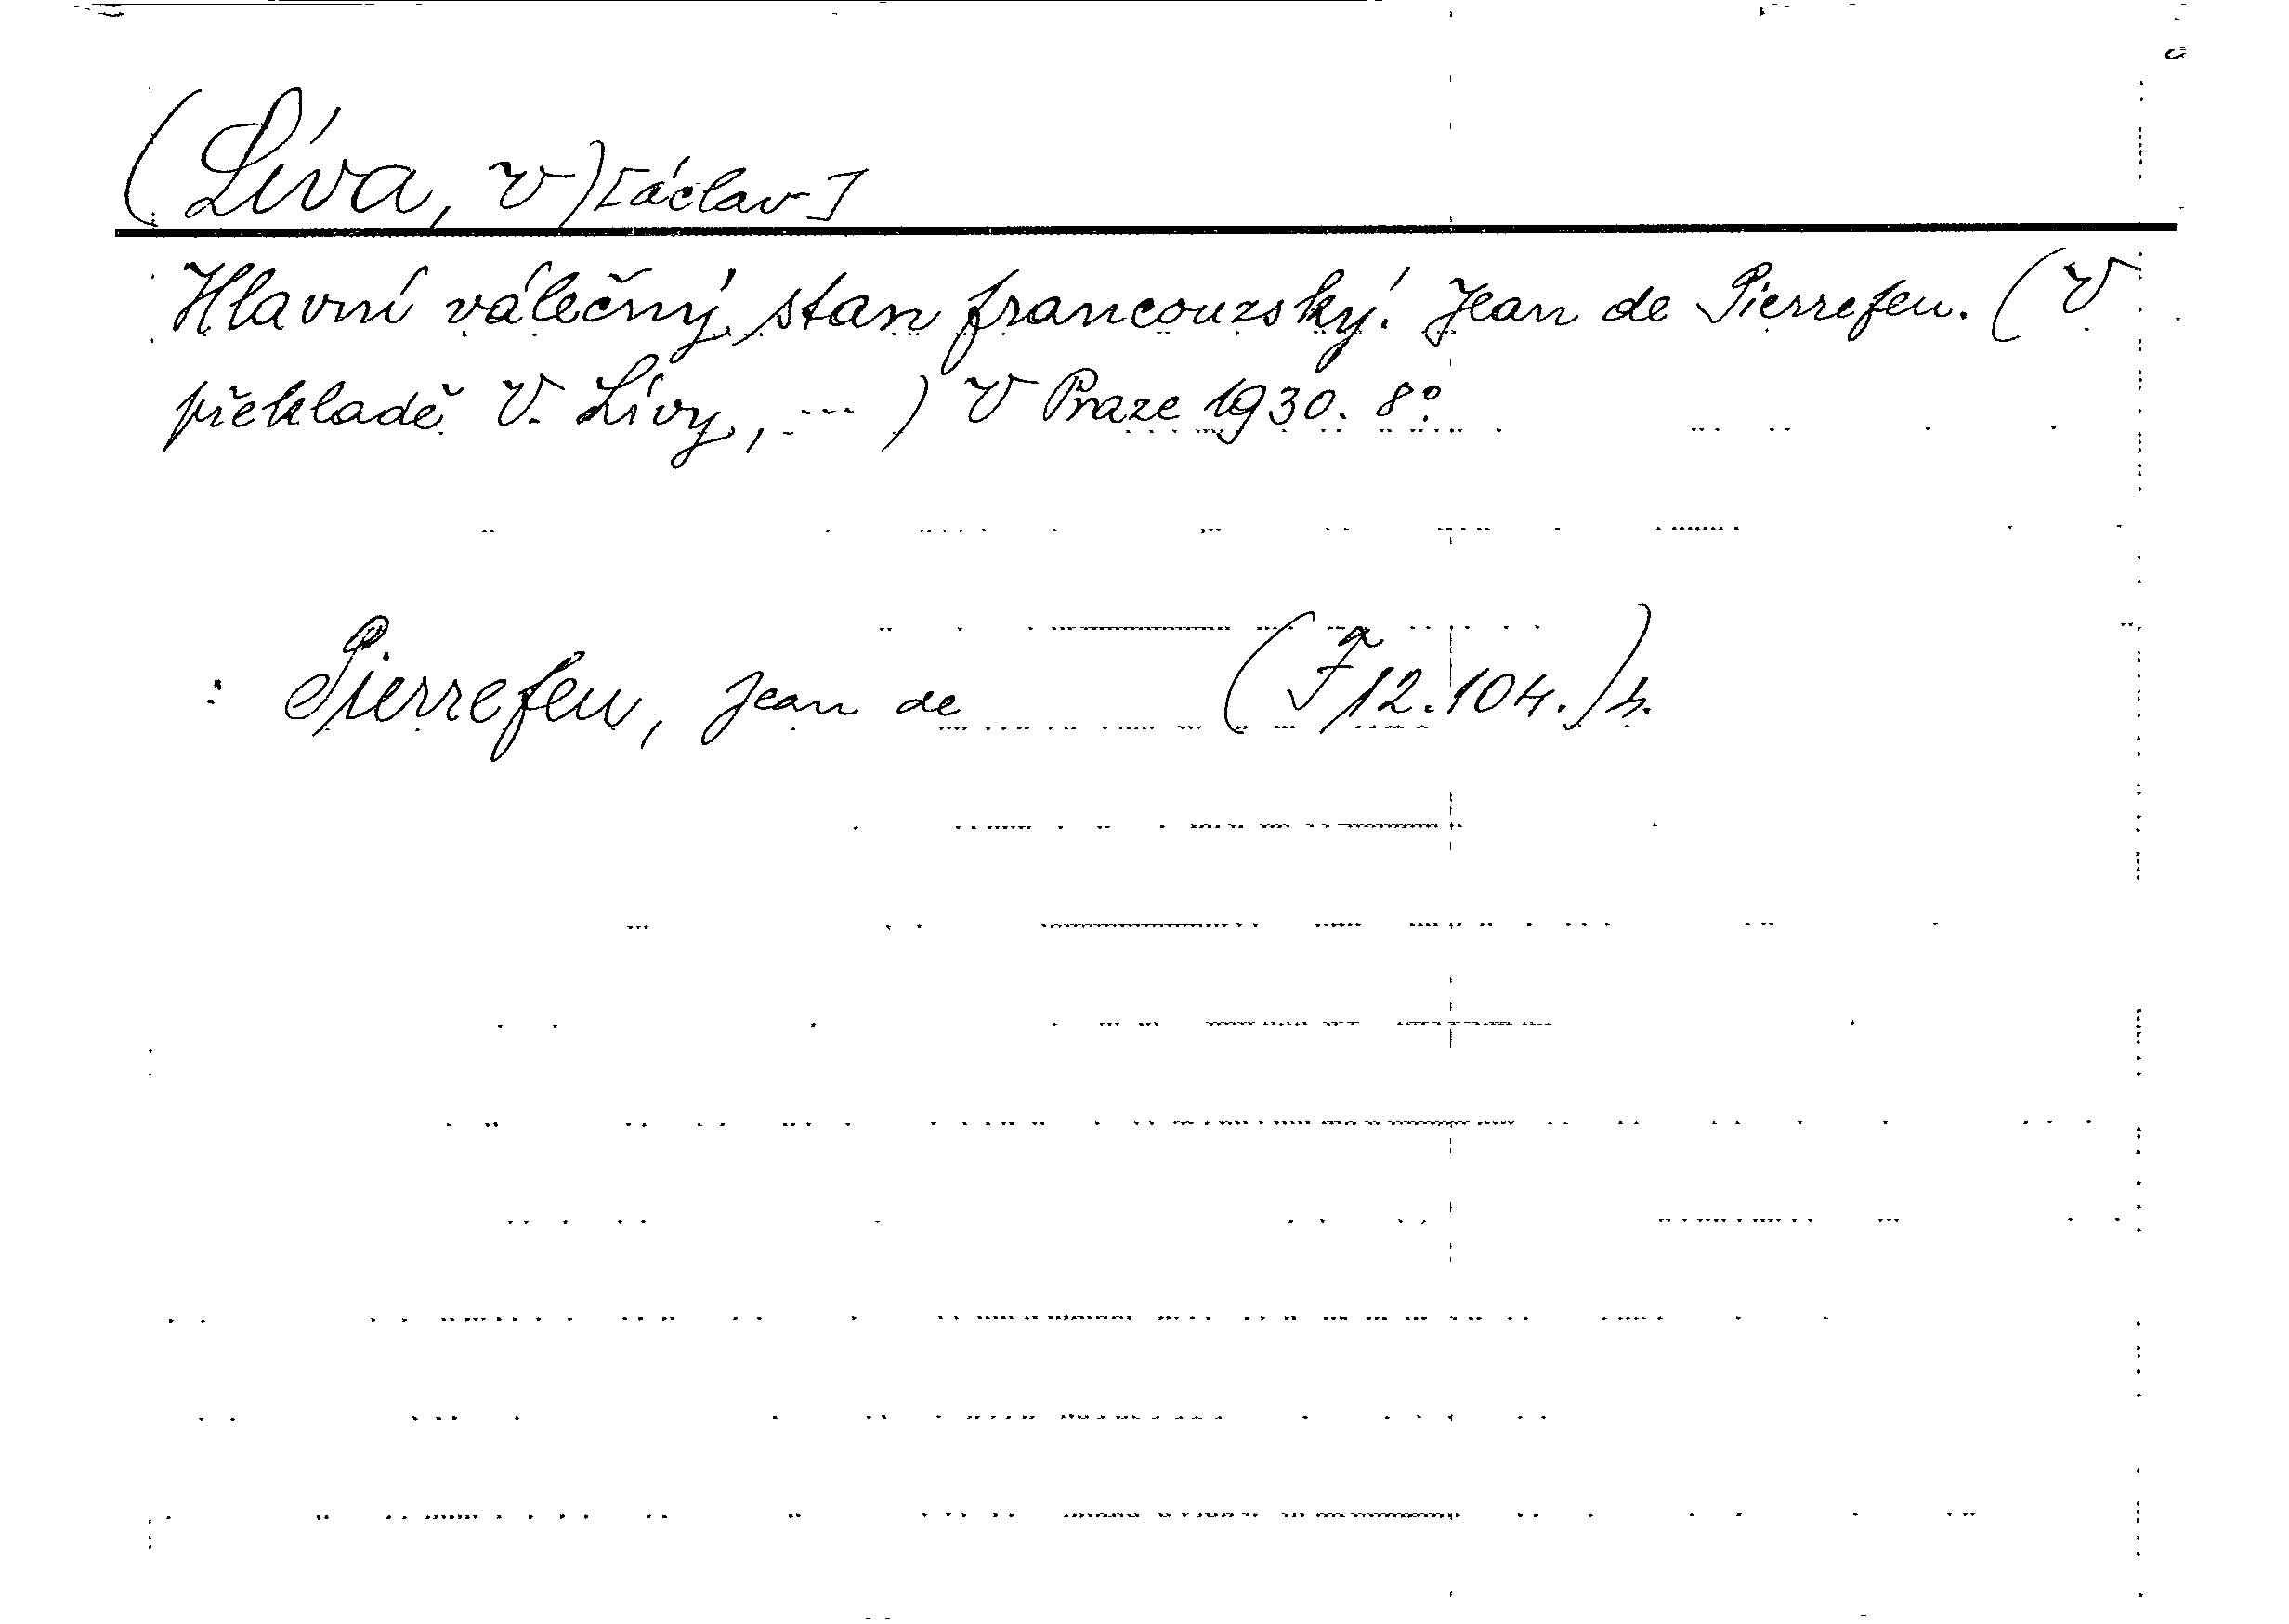 (Líva, V)[áclav]
Hlavní válečný stan francouzský. Jean de Pierrefeu. (V
překladě V. Lívy, ... ) V Praze 1930. 8°
: Pierrefeu, Jean de (F a 12.104.)